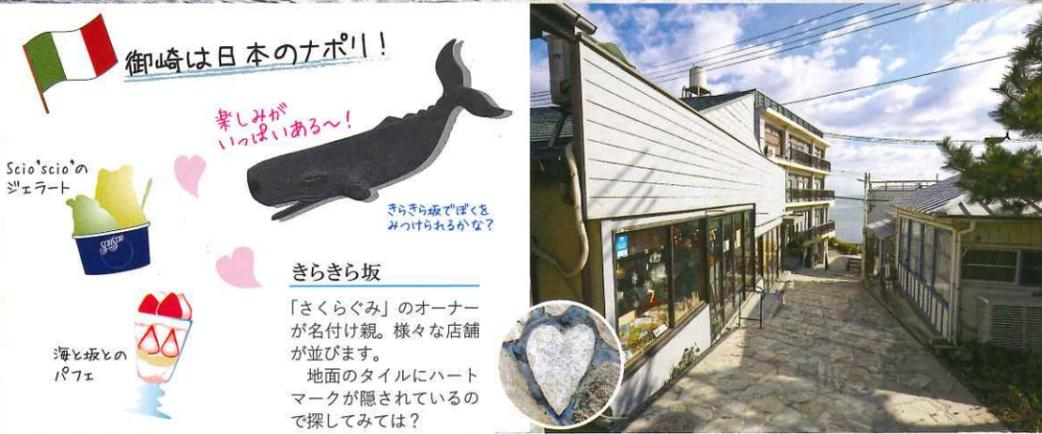 御崎は日本のナポリ！
楽しみが
いっぱいある～！
Scio'scio'の
ジェラート
きらきら坂でぼくを
みつけられるかな？
きらきら坂
「さくらぐみ」のオーナー
が名付け親。様々な店舗
が並びます。
　地面のタイルにハート
マークが隠されているの
で探してみては？
海と坂との
パフェ